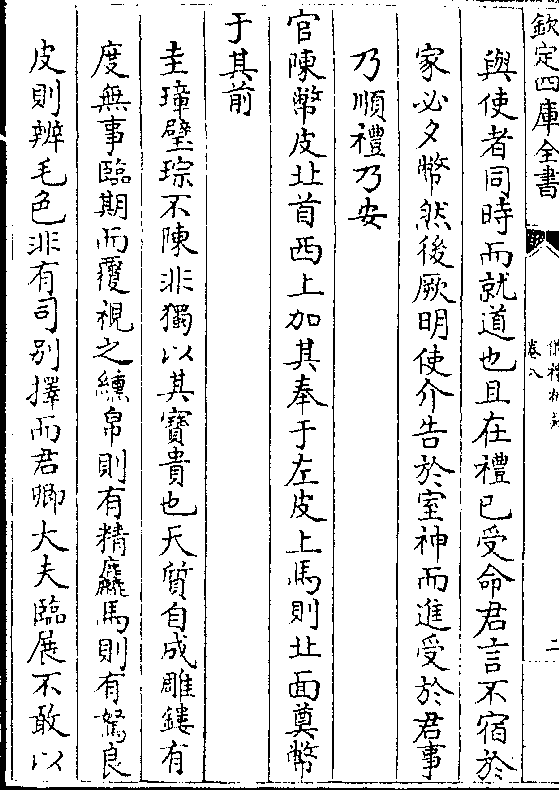 欽定四庫全書
卷八
二
與使者同時而就道也且在禮已受命君言不宿於
家必夕幣然後厥明使介告於室神而進受於君事
乃順禮乃安
官陳幣皮北首西上加其奉于左皮上馬則北面奠幣
于其前
圭璋璧琮不陳非獨以其寶貴也天質自成雕鏤有
度無事臨期而覆視之纁帛則有精麤馬則有駑良
皮則辨毛色非有司別擇而君卿大夫臨展不敢以